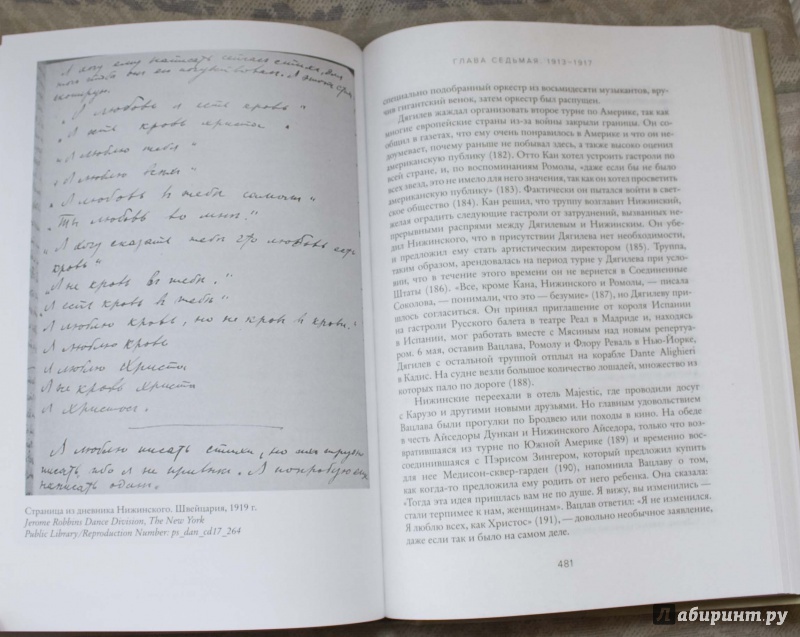 Я хочу ему написать сейчас стихи, для
того чтобы был он
"Я любовь я есть кровь"
"Я есть кровь христа"
"Я люблю тебя"
"Я люблю всех"
"Я любовь в тебе самом"
"Ты любовь во мне."
"Я хочу сказать тебе что любовь есть
кровь"
"Я не кровь в тебе."
"Я есть кровь в тебе"
Я люблю кровь, но не кровь в крови."
Я люблю кровь
Я люблю Христа
Я не кровь Христа
Я Христос.
Я люблю писать стихи, но мне трудно
писать, ибо я не привык. Я попробую
написать один.
Страница из дневника Нижинского. Швейцария, 1919 г.
Jerome Robbins Dance Division, The New York
Public Library/Reproduction Number: ps_dan_cd17_264
ГЛАВА СЕДЬМАЯ. 1913–1917
специально подобранный оркестр из восьмидесяти музыкантов, вру-
чив гигантский венок, затем оркестр был распущен.
Дягилев жаждал организовать второе турне по Америке, так как
многие европейские страны из-за войны закрыли границы. Он со-
общил в газетах, что ему очень понравилось в Америке и что он не-
доумевает, почему раньше не бывал здесь, а также высоко оценил
американскую публику (182). Отто Кан хотел устроить гастроли по
всей стране, и, по воспоминаниям Ромолы, «даже если бы не было
всех звезд, это не имело для него значения, так как он хотел просветить
американскую публику» (183). Фактически он пытался войти в свет-
ское общество (184). Кан решил, что труппу возглавит Нижинский,
желая оградить следующие гастроли от затруднений, вызванных не-
прерывными распрями между Дягилевым и Нижинским. Он убе-
дил Нижинского, что в присутствии Дягилева нет необходимости,
и предложил ему стать артистическим директором (185). Труппа,
таким образом, арендовалась на период турне у Дягилева при усло-
вии, что в течение этого времени он не вернется в Соединенные
Штаты (186). «Все, кроме Кана, Нижинского и Ромолы, — писала
Соколова, — понимали, что это — безумие» (187), но Дягилеву при-
шлось согласиться. Он принял приглашение от короля Испании
на гастроли Русского балета в театре Реал в Мадриде и, находясь
в Испании, мог работать вместе с Мясиным над новым репертуа-
ром. 6 мая, оставив Вацлава, Ромолу и Флору Реваль в Нью-Йорке,
Дягилев с остальной труппой отплыл на корабле Dante Alighieri
в Кадис. На судне везли большое количество лошадей, множество из
которых пало по дороге (188).
Нижинские переехали в отель Majestic, где проводили досуг
с Карузо и другими новыми друзьями. Но главным удовольствием
Вацлава были прогулки по Бродвею или походы в кино. На обеде
в честь Айседоры Дункан и Нижинского Айседора, только что воз-
вратившаяся из турне по Южной Америке (189) и временно вос-
соединившаяся с Пэрисом Зингером, который предложил купить
для нее Медисон-сквер-гарден (190), напомнила Вацлаву о том,
как когда-то предложила ему родить от него ребенка. Она сказала:
«Тогда эта идея пришлась вам не по душе. Я вижу, вы изменились —
стали терпимее к нам, женщинам». Вацлав ответил: «Я не изменился.
Я люблю всех, как Христос» (191), — довольно необычное заявление,
даже если так и было на самом деле.
481
Лабиринт.ру